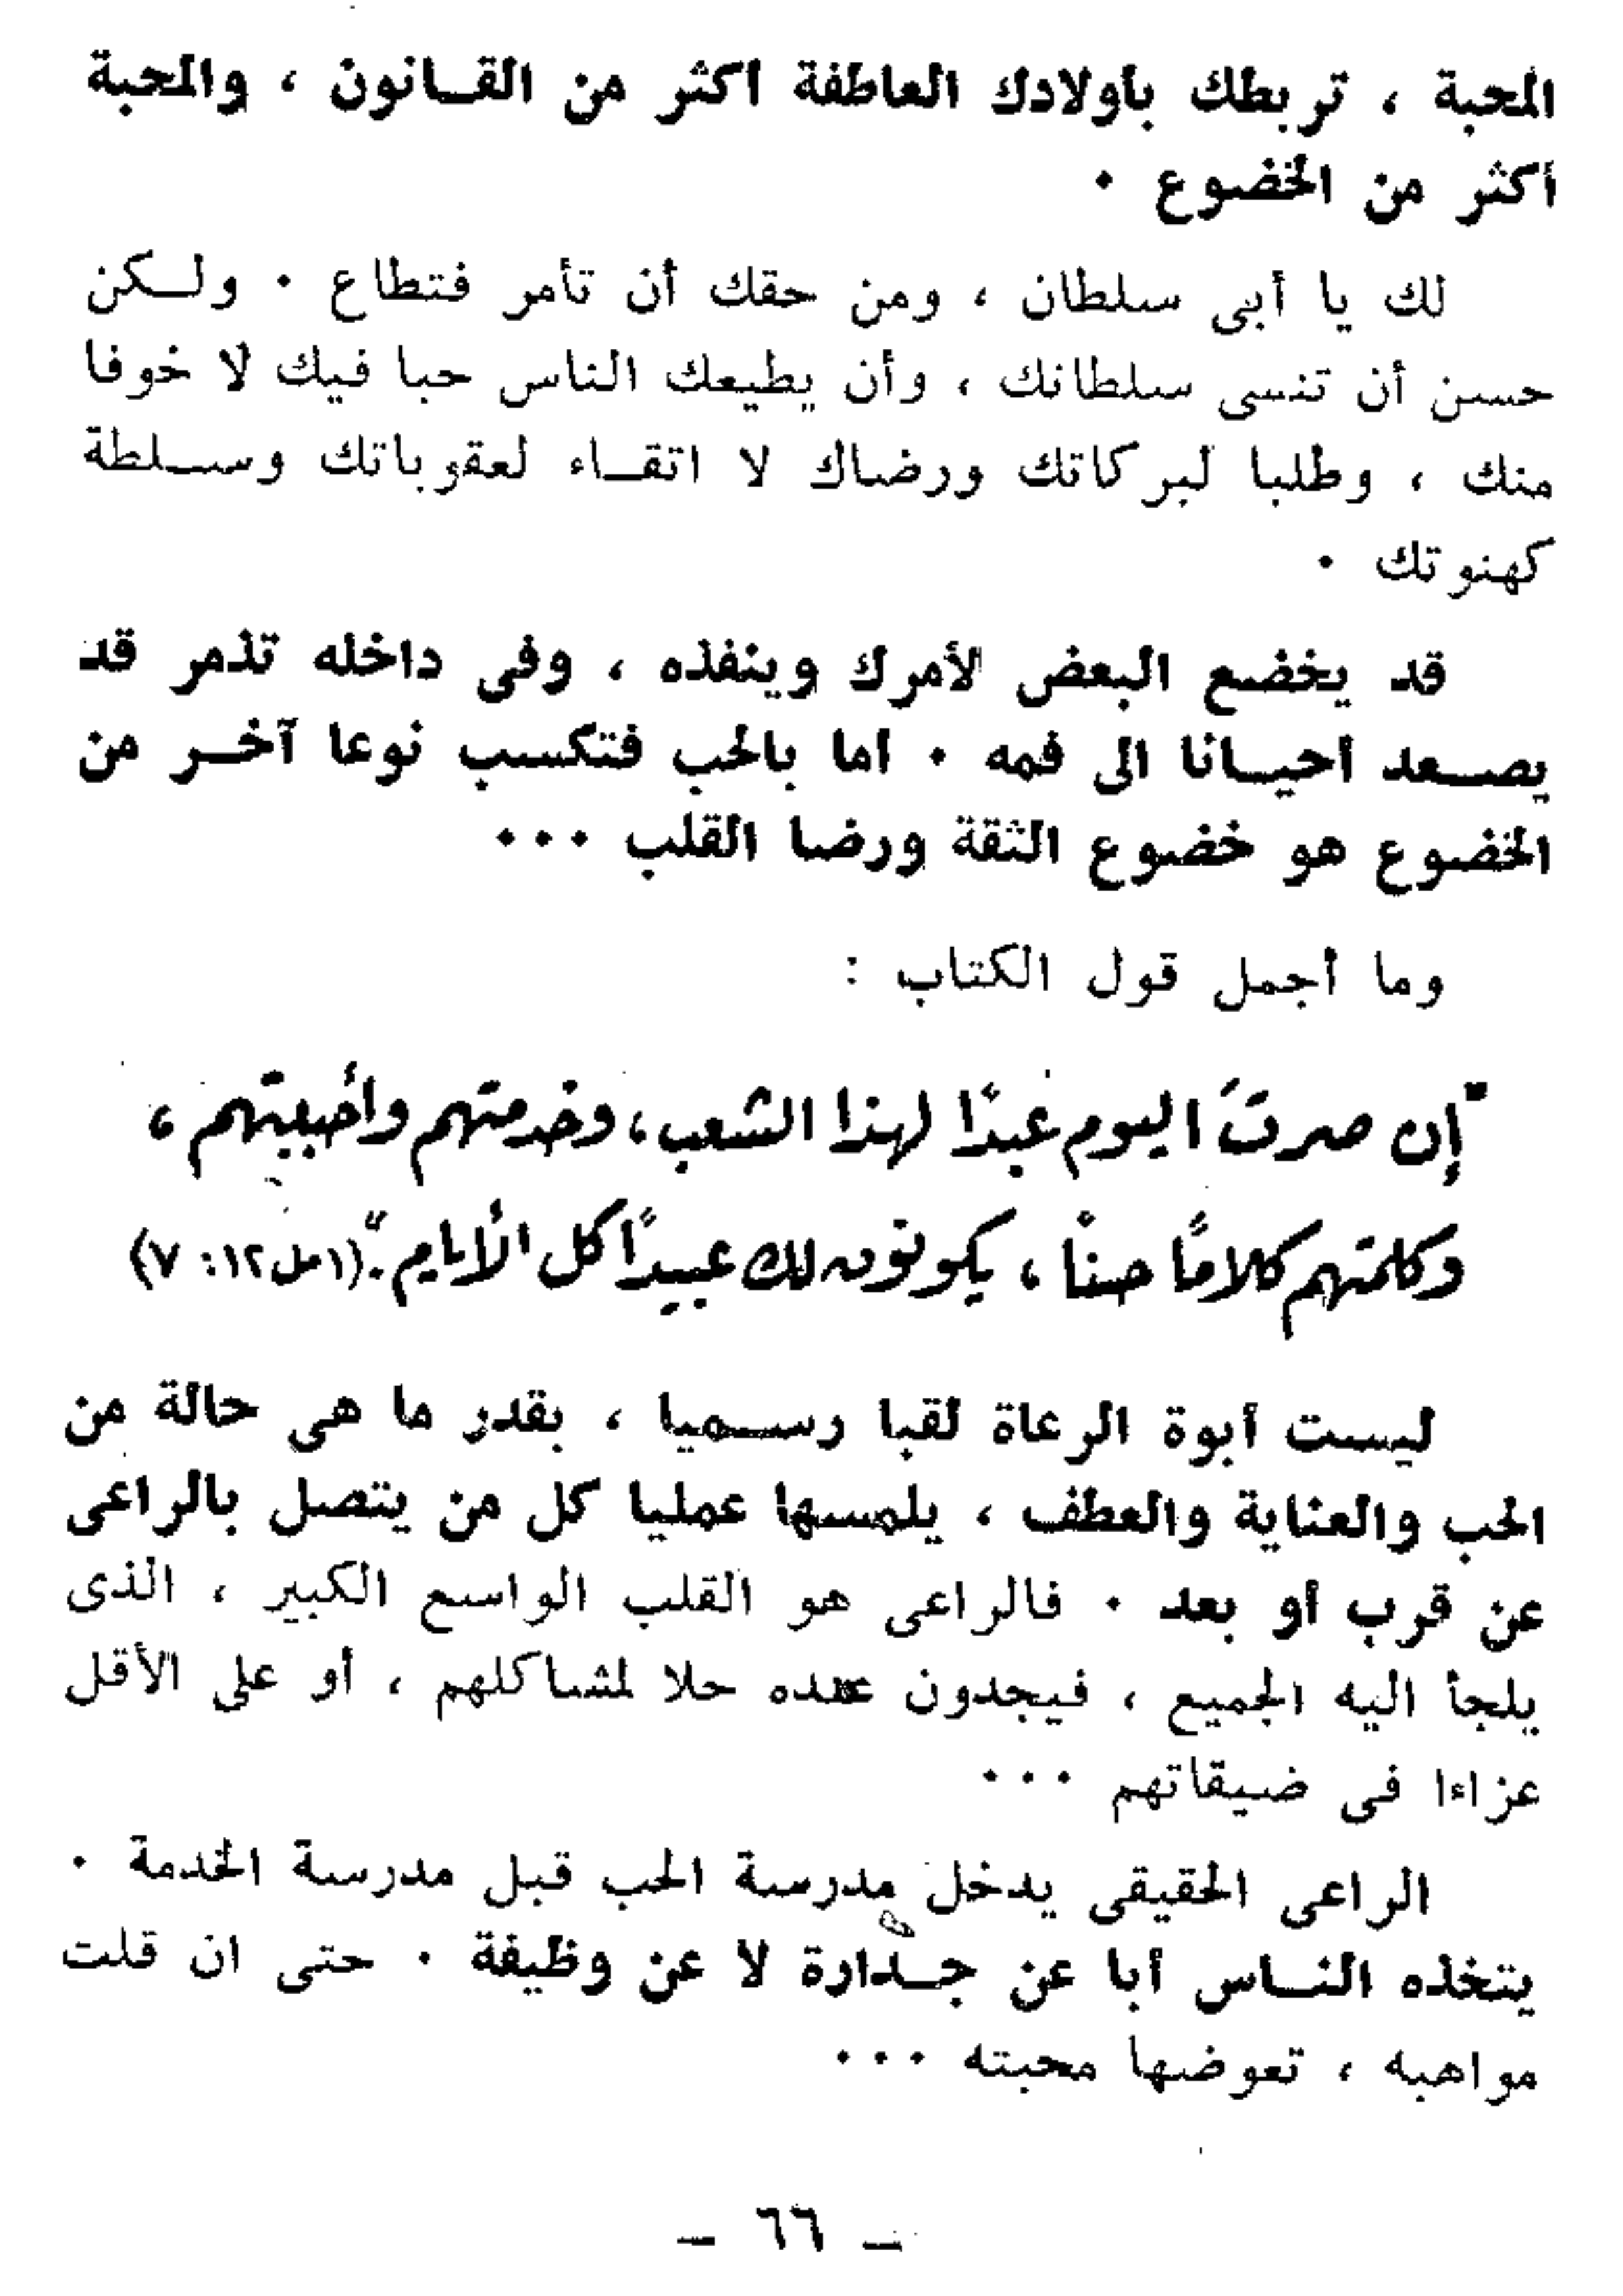 المحبة ، تربطك بأولادك العاطفة أكثر من القــانون ، والمحبة
أكثر من الخضوع .
لك يا أبى سلطان ، ومن حقك أن تأمر فتطاع . ولــكن
حسن أن تنسى سلطانك ، وأن يطيعك الناس حبا فيك لا خوفا
منك ، وطلبا لبركاتك ورضاك لا اتقــاء لعقوباتك وســلطة
كهنوتك .
قد يخضع البعض لأمرك وينفذه ، وفى داخله تذمر قد
يصــعد احيــانا الى فمه . أما بالحب فتكسب نوعا آخــر من
الخضوع هو خضوع الثقة ورضا القلب ...
وما أجمل قول الكتاب :
"إن صرتَ اليوم عبدًا لهذا الشعب، وخدمتهم وأحببتهم،
وكلمتهم كلامًا حسنًا، يكونون لك عبيدًا كل الأيام". (١مل١٢: ٧)
ليست أبوة الرعاة لقبا رســميا ، بقدر ما هى حالة من
الحب والعناية والعطف ، يلمسها عمليا كل من يتصل بالراعى
عن قرب أو بعد . فالراعى هو القلب الواسع الكبير ، الذى
يلجأ اليه الجميع ، فيجدون عنده حلا لمشاكلهم ، أو على الأقل
عزاءا فى ضيقاتهم ...
الراعى الحقيقى يدخل مدرسة الحب قبل مدرسة الخدمة .
يتخذه النــاس أبا عن جــدارة لا عن وظيفة . حتى ان قلت
مواهبه ، تعوضها محبته ...
– ٦٦ –